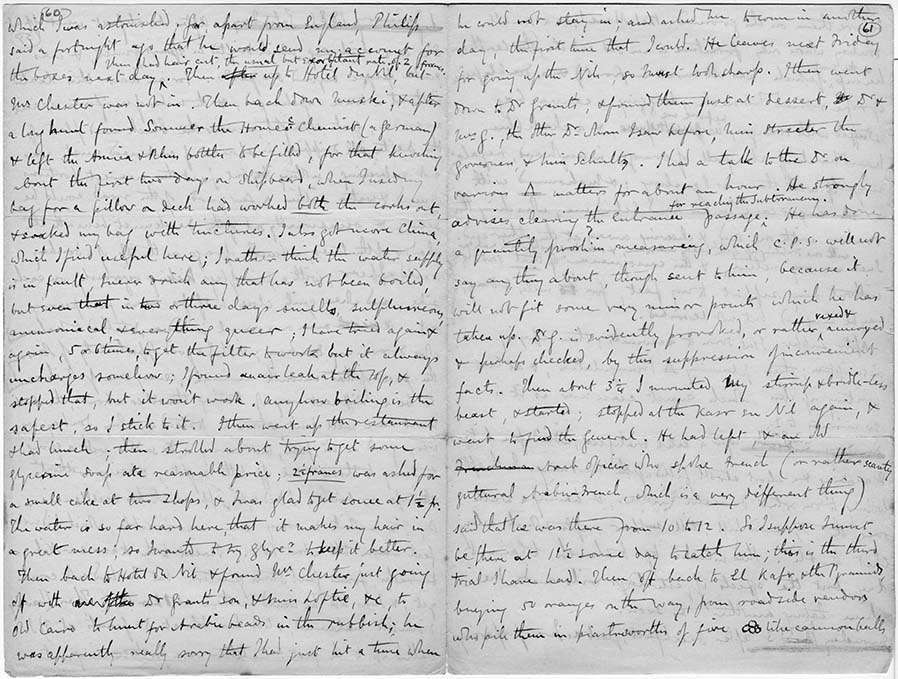 60
which I was astonished, for apart from England, Phillip
said a fortnight ago that he would send my account for
Then had hair cut, the usual but exorbitant rate of 2 francs.
the boxes next day. Then after up to Hotel du Nil but
Mr Chester was not in. Then back down Muski, & after
a long hunt found Sommer the Home: Chemist (a German)
& left the Arnica & Rhus bottles to be filled, for that knowing
about the first two days on shipboard, when I used my
bag for a pillow on deck had worked both the corks out,
& soaked my bag with tinctures. I also got more China,
which I find useful here; I rather think the water supply
is in fault, I never drink any that has not been boiled,
but even that in two or three days smells, sulphureous,
ammoniacal & everything queer; I have tried again &
again, 5 or 6 times to get the filter to work but it always
uncharges somehow; I found an air leak at the top, &
stopped that, but it wont work. Anyhow boiling is the
safest, so I stick to it. I then went up the restaurant
& had lunch; then strolled about trying to get some
glycerin soap at a reasonable price; 2 francs was asked for
a small cake at two shops, & I was glad to get some at 1½ fr.
The water is so far hard here, that it makes my hair in
a great mess; so I wanted to try glyc? to keep it better.
Then back to Hotel du Nil & found Mr Chester just going
off with Dr Grants son, & Miss Loftie, &c, to
Old Cairo to hunt for Arabic beads in the rubbish; he
was apparently really sorry that I had just hit a time when
61
he could not stay in. and asked me to come in another
day the first time that I could. He leaves next Friday
for going up the Nile, so I must look sharp. I then went
down to Dr Grants, & found them just at dessert, Dr &
Mrs G., the other Dr whom I saw before, Miss Streeter the
governess, & Miss Schultz. I had a talk to the Dr on
various Δ matters for about an hour. He strongly
for reaching the Subterranean.
advises clearing the Entrance passage. He has done
a quantity proof in measuring, which C.P.S. will not
say anything about, though sent to him, because it
will not fit some very minor points which he has
taken up. Dr G. is evidently provoked, or rather vexed & annoyed
& perhaps checked, by this suppression of inconvenient
facts. Then about 3¼ I mounted my stirrup & bridle-less
beast, & started; stopped at the Kasr en Nil again, &
went to find the General. He had left, & an old
Frenchman Arab officer who spoke French (or rather scanty
guttural Arabic French, which is a very different thing)
said that he was there from 10 to 12. So I suppose I must
be there at 11½ some day to catch him; this is the third
trial I have had. Then off back to El Kafr, & the Pyramids,
buying 50 oranges on the way, from roadside vendors
who pile them in piastresworths of five like cannon balls